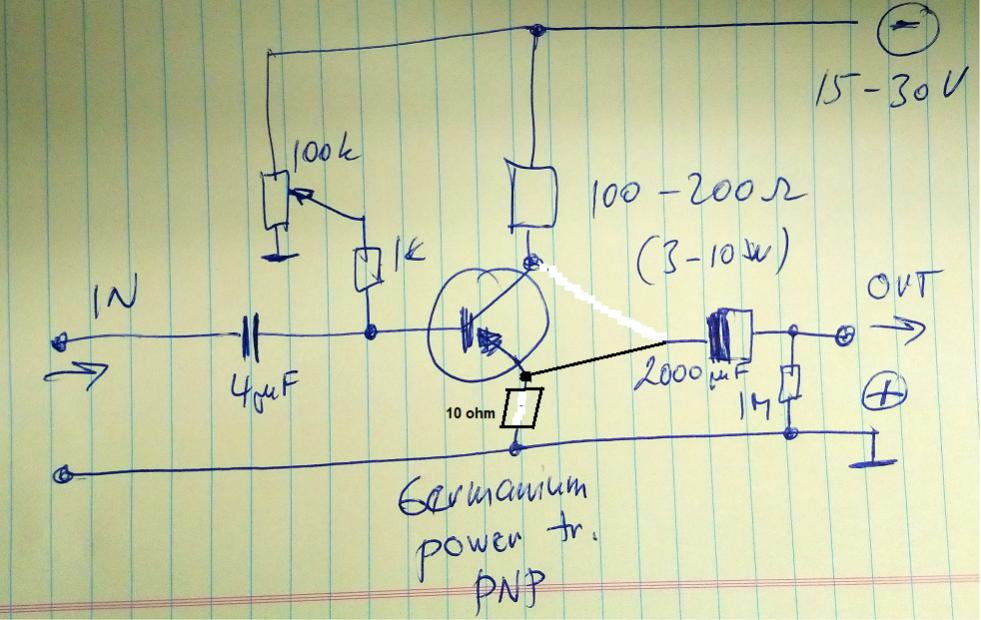 −
15-30V
100k
100-200Ω
1K
(3-10W)
IN
OUT
4µF
2000µF
+
10 ohm
1M
Germanium
power tr.
PNP